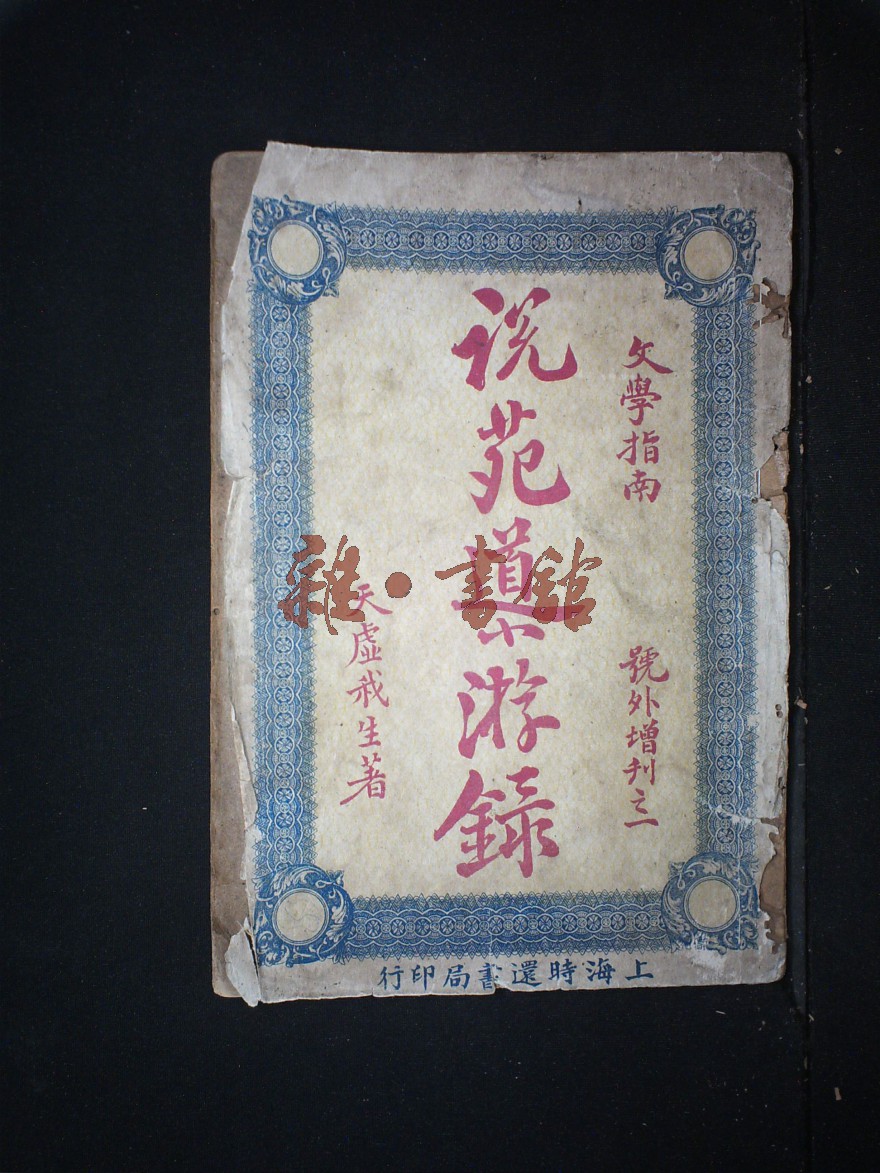 文學指南
號外增刊之一
说苑導游録
天虚我生著
上海時還書局印行
雜·書館